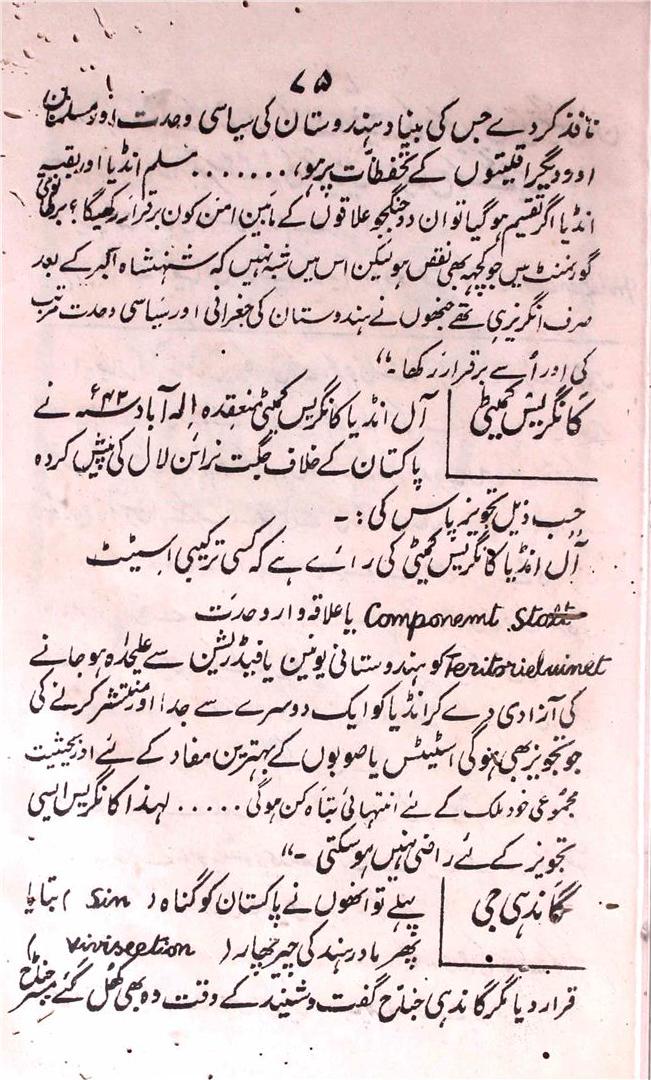 ۷۵
نافذ کر دے جس کی بنیاد ہندوستان کی سیاسی وحدت اور مسلمانوں
اور دیگر اقلیتوں کے تحفظات پر ہو، ....... مسلم انڈیا اور بقیہ
انڈیا اگر تقسیم ہو گیا تو ان دو جنگجو علاقوں کے مابین امن کون برقرار رکھیگا ؟ برطانوی
گورنمنٹ میں جو کچھ بھی نقص ہو لیکن اس میں شبہ نہیں کہ شہنشاہ اکبر کے بعد
صرف انگریز ہی تھے جنھوں نے ہندوستان کی جغرافی اور سیاسی وحدت مرتب
کی اور اُسے برقرار رکھا ۔"
کانگریس کمیٹی آل انڈیا کانگریس کمیٹی منعقدہ الہ آباد سنہ ۴۲ء نے
پاکستان کے خلاف جگت نرائن لال کی پیش کردہ
حسب ذیل تجویز پاس کی : ۔
آل انڈیا کانگریس کمیٹی کی رائے ہے کہ کسی ترکیبی اسٹیٹ
Componemt Statt یا علاقہ وار وحدت
Teritorieluinet کو ہندوستانی یونین یا فیڈریشن سے علیحدہ ہو جانے
کی آزادی دے کر انڈیا کو ایک دوسرے سے جدا اور منتشر کرنے کی
جو تجویز بھی ہوگی اسٹیٹس یا صوبوں کے بہترین مفاد کے لئے اور بحیثیت
مجموعی خود ملک کے لئے انتہائی تباہ کن ہوگی ..... لہذا کانگریس ایسی
تجویز کے لئے راضی نہیں ہو سکتی ۔"
گاندہی جی پہلے تو انھوں نے پاکستان کو گناہ ( Sin ) بتایا
پھر مادر ہند کی چیر پھاڑ ( Viviseetion )
قرار دیا مگر گاندہی جناح گفت و شنید کے وقت وہ بھی کھل گئے مسٹر جناح